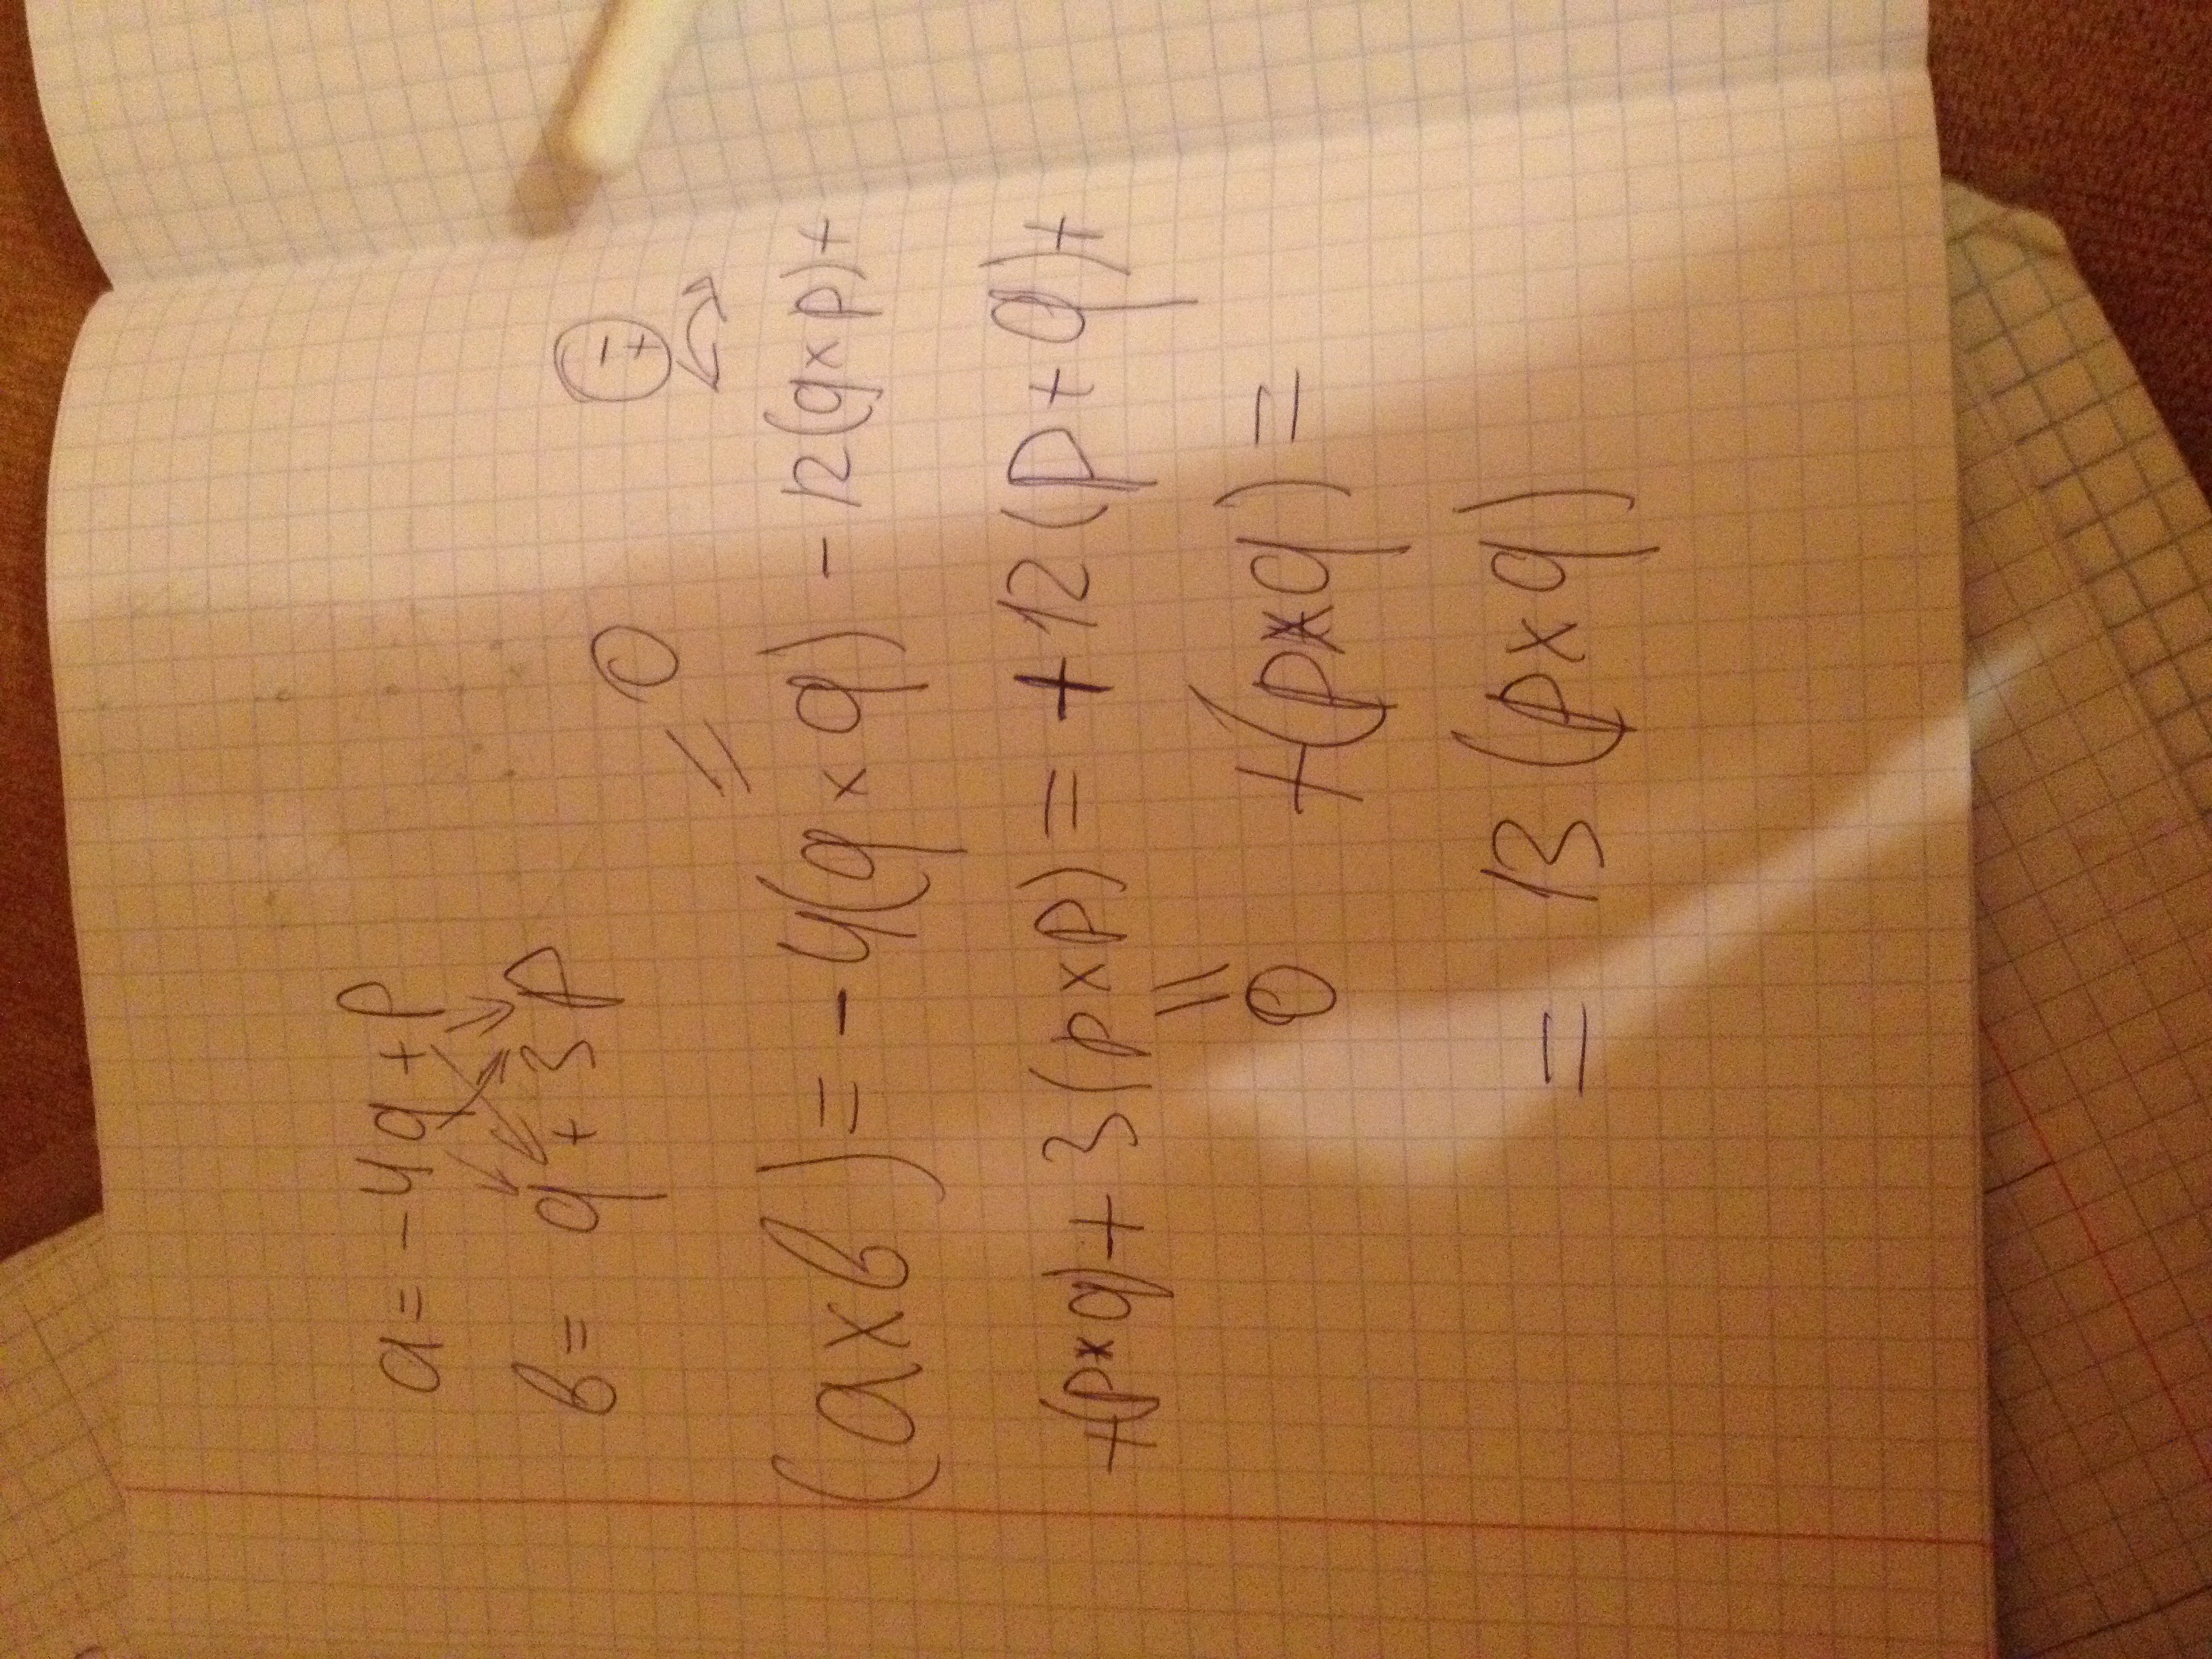 a = -4q + p
b = q + 3p
0 -+
=
(a×b) = -4(q×q) - 12(q×p)+
+(p×q)+3(p×p) = +12(p+q)+
=
0
+(p×q) =
= 13(p×q)